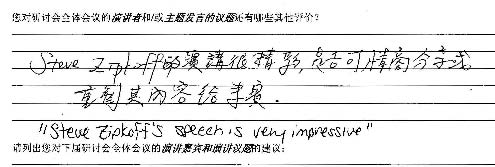 您对研讨会全体会议的演讲者和/或主题发言的议题还有哪些其他评价?
Steve Zipkoff的演講很精彩,是否可情商分享或
重製其內容給來賓.
"Steve Zipkoff's speech is very impressive"
请列出您对下届研讨会全体会议的演讲嘉宾和演讲议题的建议: